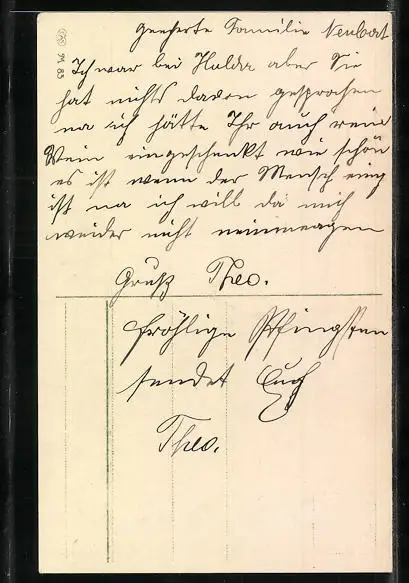 Geeherte Familie
Ich war bei Hulda aber Sie
hat nichts davon gesprochen
na ich hätte Ihr auch rein
Wein eingeschenkt wie schön
es ist wenn der Mensch einig
ist na ich will da mich
weider nicht
Gruß Theo.
fröhlige Pfingsten
sendet Euch
Theo.